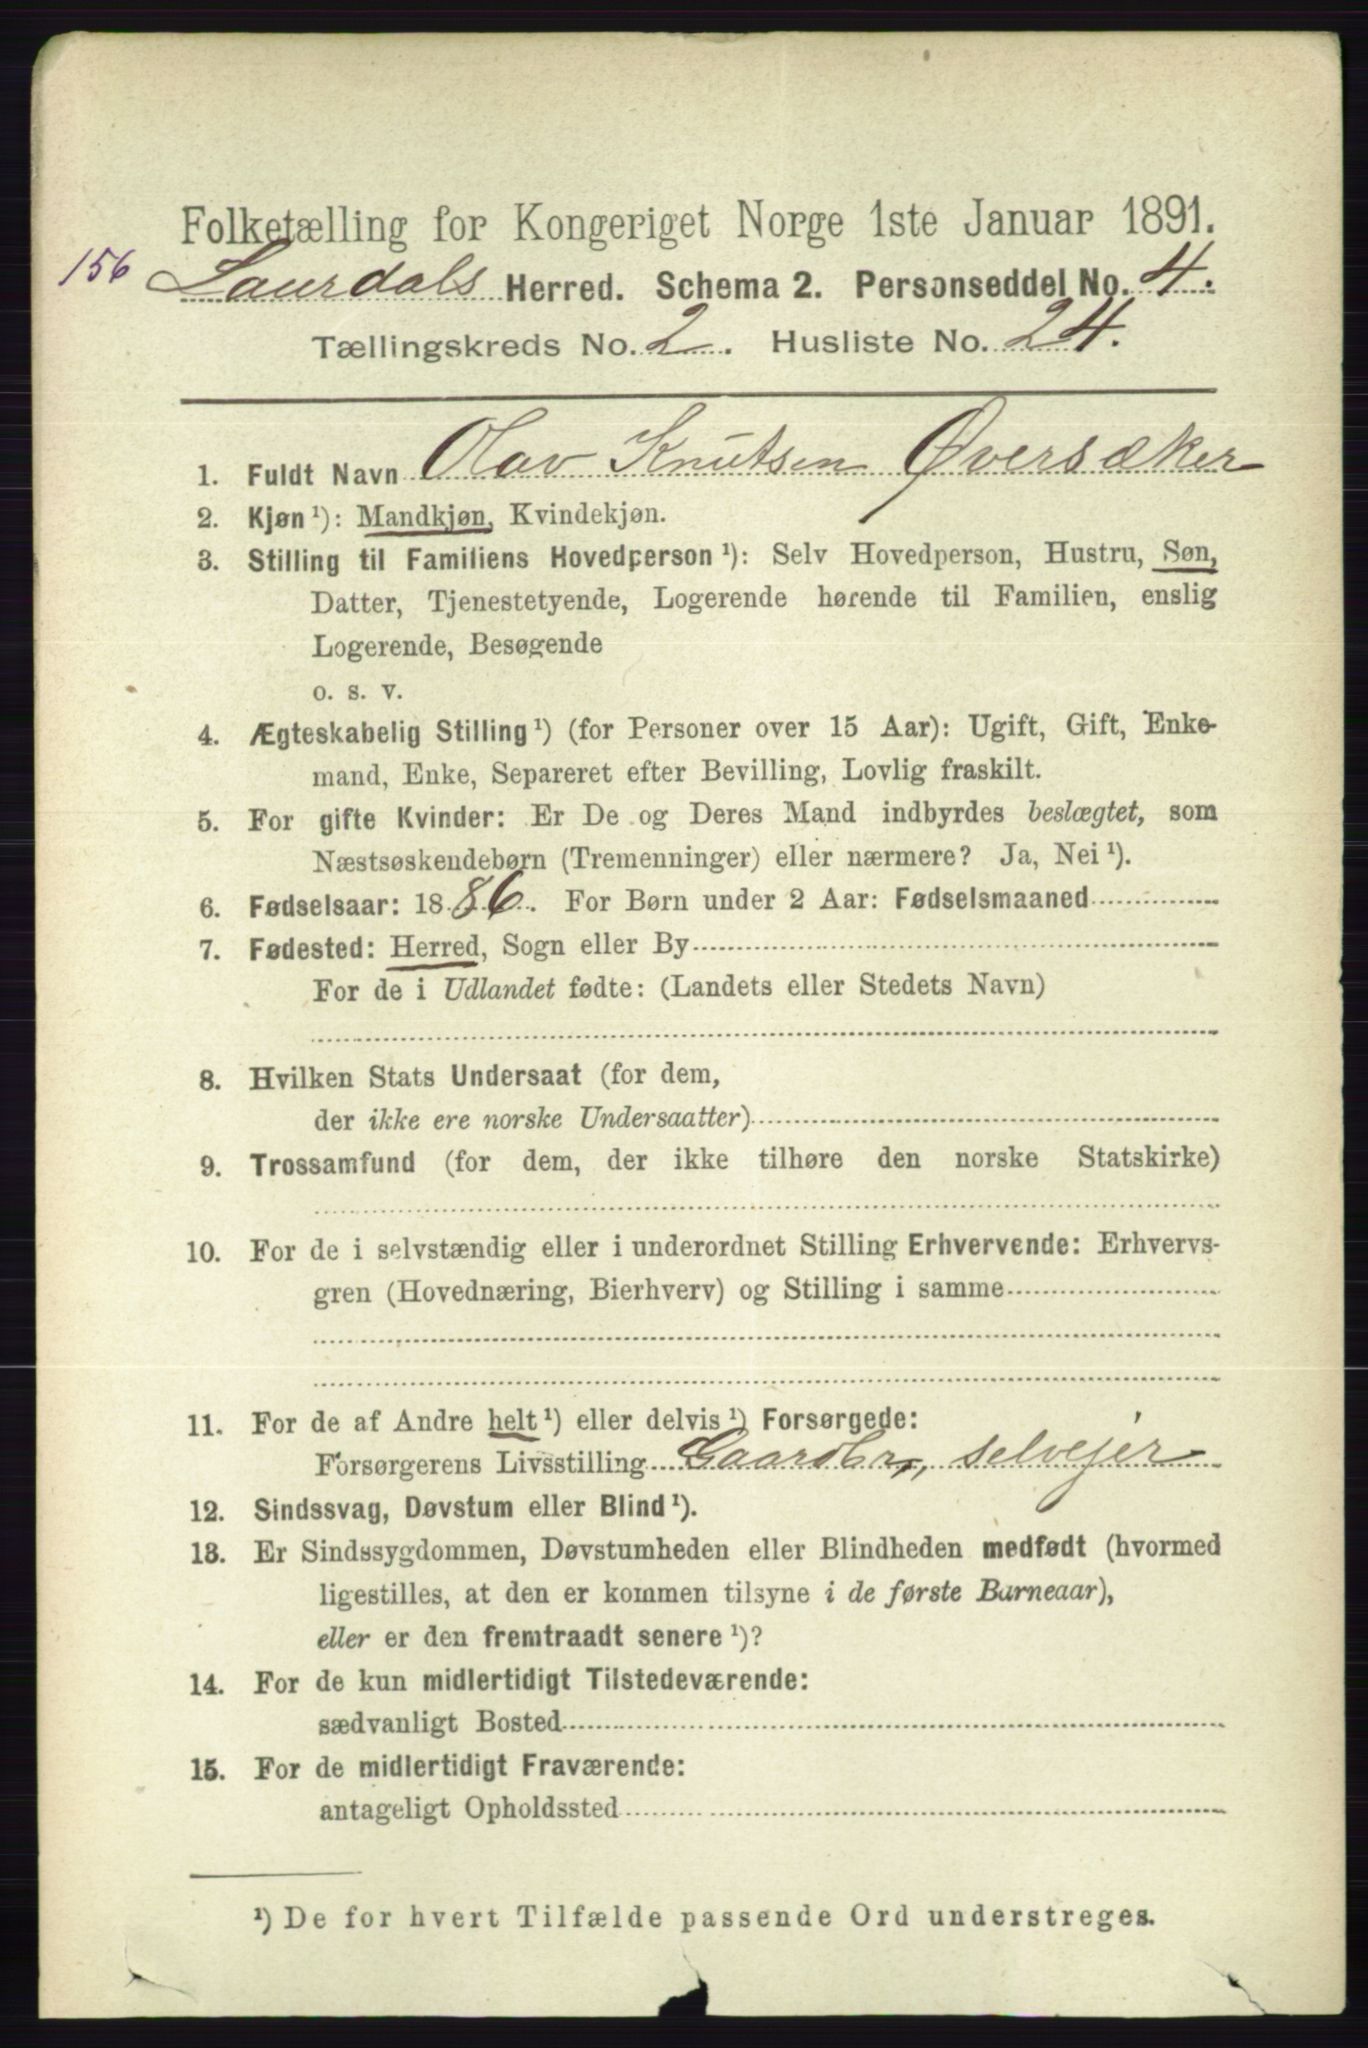 Folketælling for Kongeriget Norge 1ste Januar 1891.
156 Laurdals Herred. Schema 2. Personseddel No. 4.
Tællingskreds No. 2. Husliste No. 24.
1. Fuldt Navn Olav Knutsen Øversæker
2. Kjøn¹): Mandkjøn, Kvindekjøn.
3. Stilling til Familiens Hovedperson¹): Selv Hovedperson, Hustru, Søn,
Datter, Tjenestetyende, Logerende hørende til Familien, enslig
Logerende, Besøgende
o. s. v.
4. Ægteskabelig Stilling¹) (for Personer over 15 Aar): Ugift, Gift, Enke-
mand, Enke, Separeret efter Bevilling, Lovlig fraskilt.
5. For gifte Kvinder: Er De og Deres Mand indbyrdes beslægtet, som
Næstsøskendebørn (Tremenninger) eller nærmere? Ja, Nei¹).
6. Fødselsaar: 1886. For Børn under 2 Aar: Fødselsmaaned
7. Fødested: Herred, Sogn eller By
For de i Udlandet fødte: (Landets eller Stedets Navn)
8. Hvilken Stats Undersaat (for dem,
der ikke ere norske Undersaatter)
9. Trossamfund (for dem, der ikke tilhøre den norske Statskirke)
10. For de i selvstændig eller i underordnet Stilling Erhvervende: Erhvervs-
gren (Hovednæring, Bierhverv) og Stilling i samme
11. For de af Andre helt¹) eller delvis¹) Forsørgede:
Forsørgerens Livsstilling Gaardbr., selvejer
12. Sindssvag, Døvstum eller Blind¹).
13. Er Sindssygdommen, Døvstumheden eller Blindheden medfødt (hvormed
ligestilles, at den er kommen tilsyne i de første Barneaar),
eller er den fremtraadt senere¹)?
14. For de kun midlertidigt Tilstedeværende:
sædvanligt Bosted
15. For de midlertidigt Fraværende:
antageligt Opholdssted
¹) De for hvert Tilfælde passende Ord understreges.